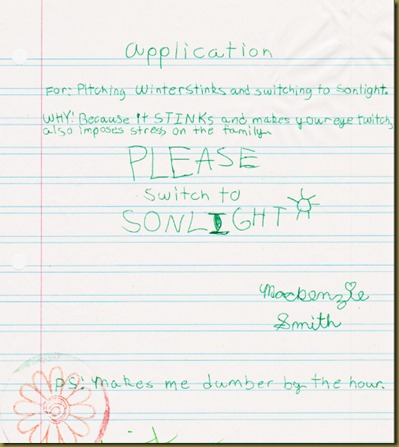 Application
For: Pitching Winterstinks and switching to Sonlight.
WHY: Because it STINKs and makes your eye twitch,
also imposes stress on the family.
PLEASE
switch to
SONLIGHT
Mackenzie
Smith
PS: Makes me dumber by the hour.